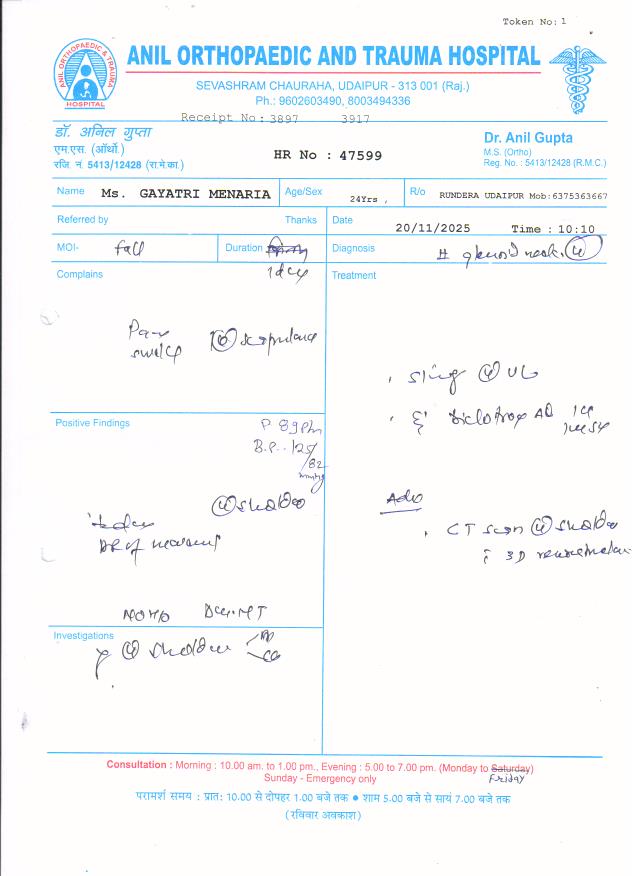 Token No: 1
ANIL ORTHOPAEDIC & TRAUMA
HOSPITAL
ANIL ORTHOPAEDIC AND TRAUMA HOSPITAL
SEVASHRAM CHAURAHA, UDAIPUR - 313 001 (Raj.)
Ph.: 9602603490, 8003494336
Receipt No: 3897 3917
डॉ. अनिल गुप्ता
एम.एस. (ऑर्थो.)
रजि नं. 5413/12428 (रा.मे.का.)
HR No : 47599
Dr. Anil Gupta
M.S. (Ortho)
Reg. No. : 5413/12428 (R.M.C.)
Name Ms. GAYATRI MENARIA Age/Sex 24Yrs , R/o RUNDERA UDAIPUR Mob:6375363667
Referred by Thanks Date 20/11/2025 Time : 10:10
MOI- fall Duration 1 day Diagnosis # glenoid neck (L)
Complains Treatment
Pain
swelling (L) scapular
sling (L) UL
Positive Findings
P 89 Pm
B.P.. 125/82
mmHg
(L) shoulder
Adv
CT scan (L) shoulder
3D
NO H/O
Investigations
(L) shoulder AP
Consultation : Morning : 10.00 am. to 1.00 pm., Evening : 5.00 to 7.00 pm. (Monday to Saturday)
Friday
Sunday - Emergency only
परामर्श समय : प्रात: 10.00 से दोपहर 1.00 बजे तक ● शाम 5.00 बजे से सायं 7.00 बजे तक
(रविवार अवकाश)